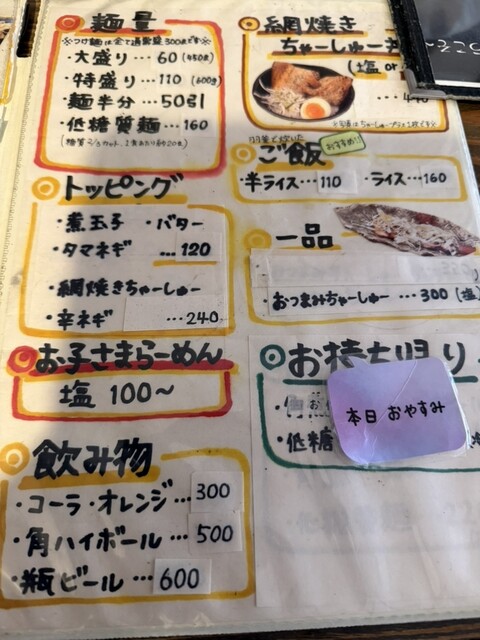 麺量
※つけ麺は全て通常盛300gです※
・大盛り…60(450g)
・特盛り…110(600g)
・麺半分…50引
・低糖質麺…160
トッピング
・煮玉子 ・バター
・タマネギ …120
・網焼きちゃーしゅー
・辛ネギ …240
お子さまらーめん
塩 100~
飲み物
・コーラ・オレンジ…300
・角ハイボール…500
・瓶ビール…600
網焼き
ちゃーしゅー
(塩 or
羽釜で炊いた
おすすめ!!
ご飯
・半ライス…110 ・ライス…160
一品
・おつまみちゃーしゅー…300(塩
お持ち帰り
本日 おやすみ
・低糖